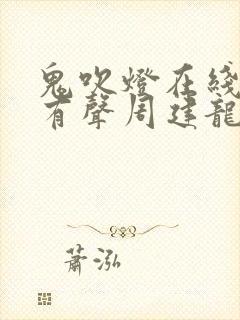 鬼吹燈在綫
有聲周建龍
蕭泓